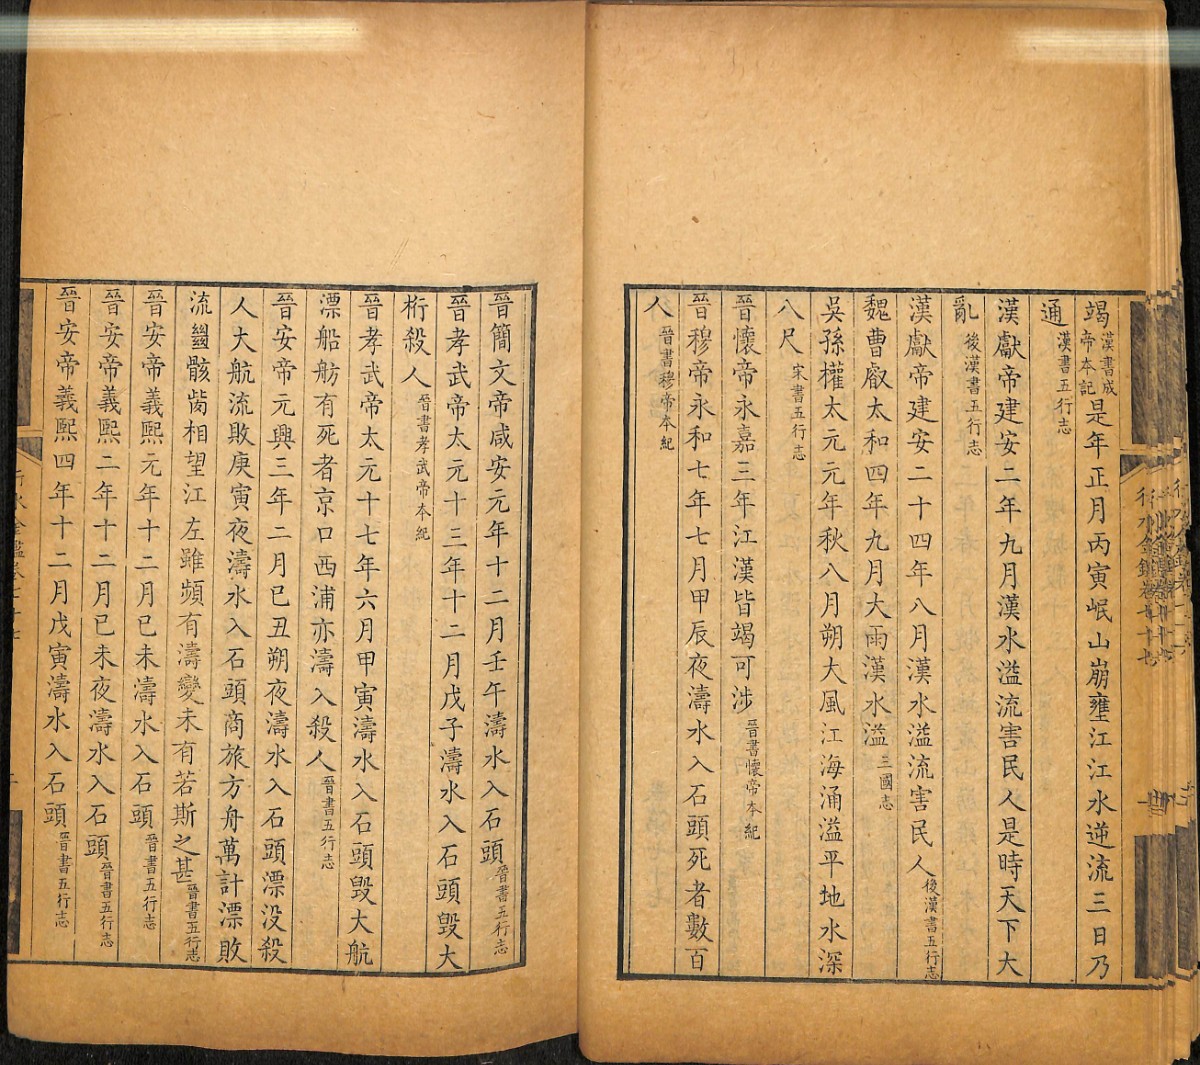 竭漢書成帝本記是年正月丙寅岷山崩壅江江水逆流三日乃
通漢書五行志
漢獻帝建安二年九月漢水溢流害民人是時天下大
亂後漢書五行志
漢獻帝建安二十四年八月漢水溢流害民人後漢書五行志
魏曹叡太和四年九月大雨漢水溢三國志
吳孫權太元元年秋八月朔大風江海涌溢平地水深
八尺宋書五行志
晉懷帝永嘉三年江漢皆竭可涉晉書懷帝本紀
晉穆帝永和七年七月甲辰夜濤水入石頭死者數百
人晉書穆帝本紀
晉簡文帝咸安元年十二月壬午濤水入石頭晉書五行志
晉孝武帝太元十三年十二月戊子濤水入石頭毀大
桁殺人晉書孝武帝本紀
晉孝武帝太元十七年六月甲寅濤水入石頭毀大航
漂船舫有死者京口西浦亦濤入殺人晉書五行志
晉安帝元興三年二月巳丑朔夜濤水入石頭漂沒殺
人大航流敗庚寅夜濤水入石頭商旅方舟萬計漂敗
流斷骸胔相望江左雖頻有濤變未有若斯之甚晉書五行志
晉安帝義熙元年十二月巳未濤水入石頭晉書五行志
晉安帝義熙二年十二月巳未夜濤水入石頭晉書五行志
晉安帝義熙四年十二月戊寅濤水入石頭晉書五行志
行水金鑑卷七十七